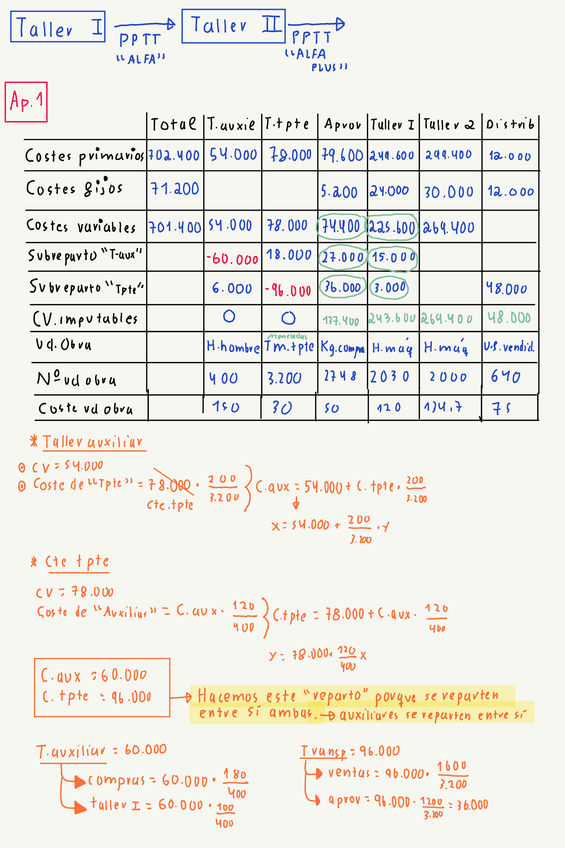 Taller I
Taller II
PPTT
"ALFA"
PPTT
"ALFA
PLUS"
Ap.1
Total T.auxie T.tpte Aprov Taller I Taller 2 Distrib
Costes primarios 702.400 54.000 78.000 79.600 249.600 299.400 12.000
Costes fijos 71.200 5.200 24.000 30.000 12.000
Costes variables 701.400 54.000 78.000 74.400 225.600 269.400
Subreparto "T-aux" -60.000 18.000 27.000 15.000
Subreparto "Tpte" 6.000 -96.000 36.000 3.000 48.000
CV.imputables 0 0 137.400 243.600 269.400 48.000
Ud.Obra H.hombre Tm.tpte Kg.compra H.máq H.máq U.f.vendid.
Nº ud obra 400 3.200 2748 2030 2000 640
Coste ud obra 150 30 50 120 134,7 75
* Taller auxiliar
CV = 54.000
Coste de "Tpte" = 78.000 · 200/3.200
cte.tpte
C.aux = 54.000 + C.tpte · 200/3.200
x = 54.000 + 200/3.200 · y
* Cte tpte
CV = 78.000
Coste de "Auxiliar" = C.aux · 120/400
C.tpte = 78.000 + C.aux · 120/400
y = 78.000 · 120/400 x
C.aux = 60.000
C.tpte = 96.000
Hacemos este "reparto" porque se reparten
entre sí ambas. → auxiliares se reparten entre sí
T.auxiliar = 60.000
compras = 60.000 · 180/400
taller I = 60.000 · 100/400
Transp = 96.000
ventas = 96.000 · 1600/3.200
aprov = 96.000 · 1200/3.200 = 36.000